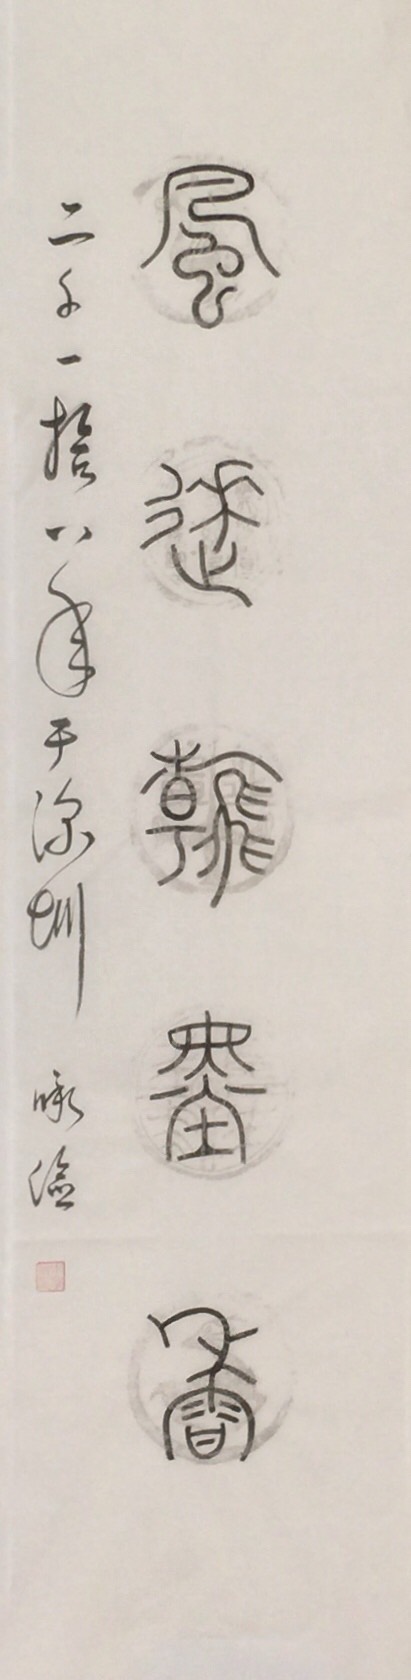 風送翰墨香
二千一拾八年于深圳 咏